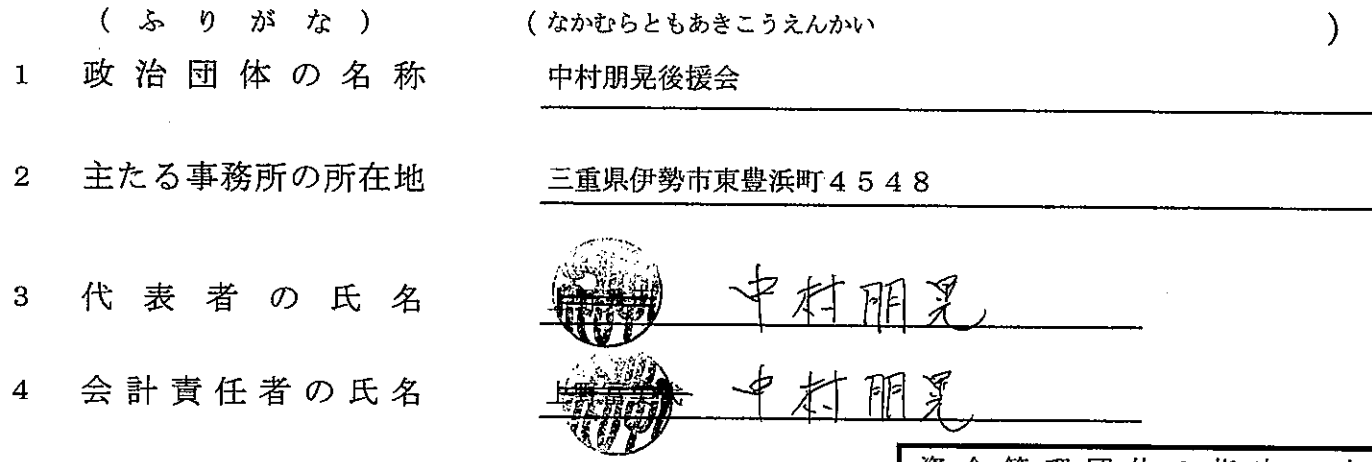 (ふりがな) (なかむらともあきこうえんかい)
1 政治団体の名称 中村朋晃後援会
2 主たる事務所の所在地 三重県伊勢市東豊浜町4548
3 代表者の氏名 中村朋晃
4 会計責任者の氏名 中村朋晃